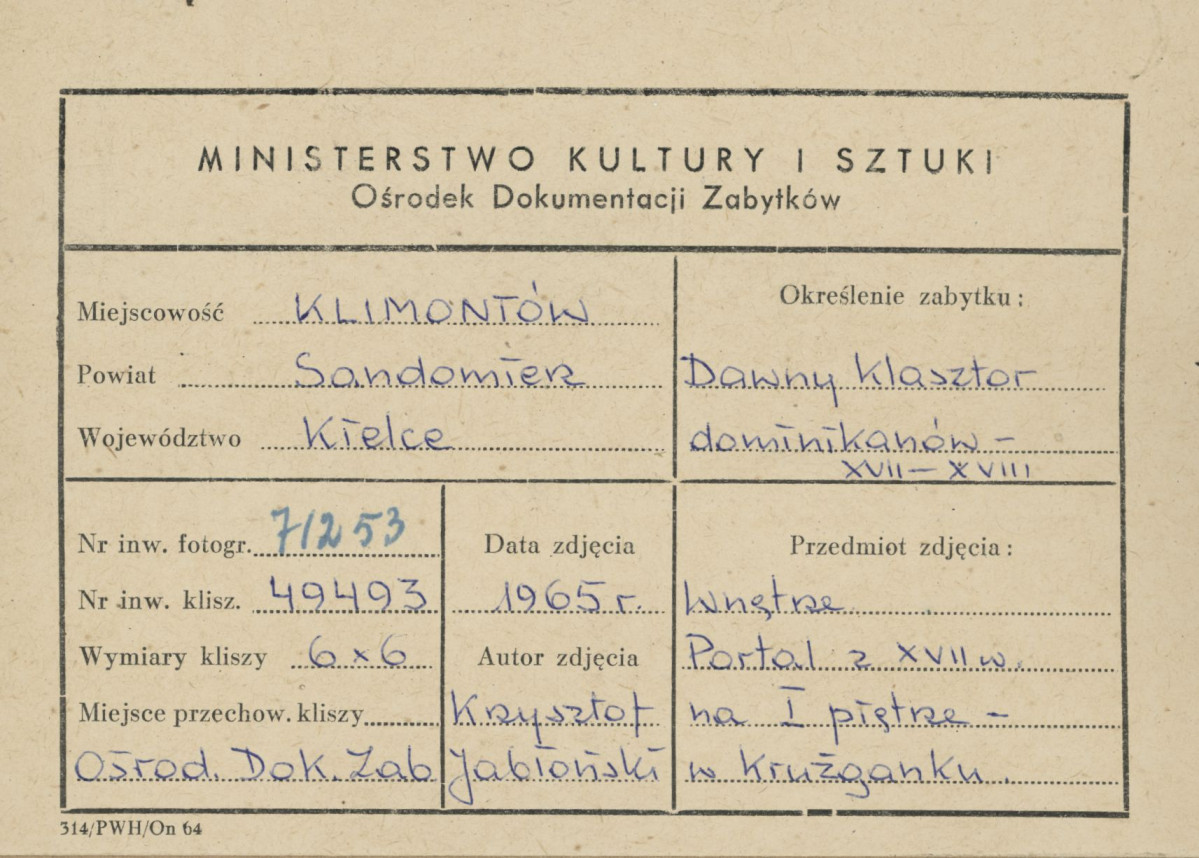 MINISTERSTWO KULTURY I SZTUKI
Ośrodek Dokumentacji Zabytków
Miejscowość KLIMONTÓW
Powiat Sandomierz
Województwo Kielce
Określenie zabytku:
Dawny Klasztor
dominikanów –
XVII – XVIII
Nr inw. fotogr. 71253
Nr inw. klisz. 49493
Wymiary kliszy 6 x 6
Miejsce przechow. kliszy
Ośrod. Dok. Zab
Data zdjęcia
1965 r.
Autor zdjęcia
Krzysztof
Jabłoński
Przedmiot zdjęcia:
Wnętrze
Portal z XVII w.
na I piętrze –
w Krużganku.
314/PWH/On 64